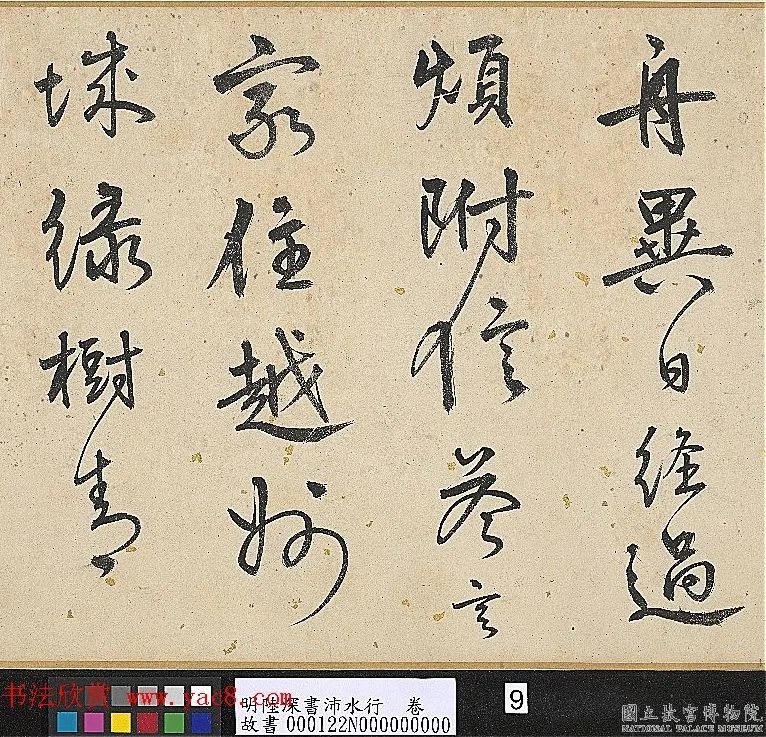 舟異日經過
煩附信答言
家住越州
城緑樹青
書法欣賞 www.yac8.com
明陸深書沛水行　卷
故書 000122N000000000
9
國立故宮博物院
NATIONAL PALACE MUSEUM